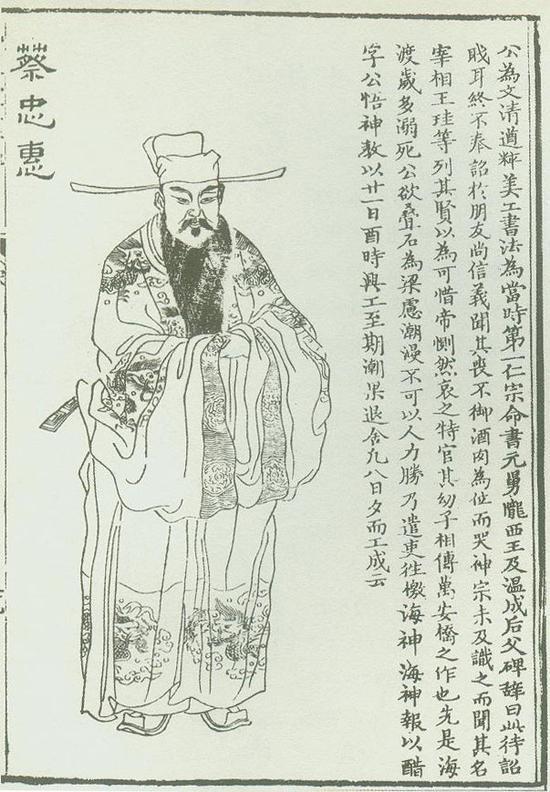 公為文清遒粹美工書法為當時第一仁宗命書元舅隴西王及溫成后父碑辭曰此待詔
職耳終不奉詔於朋友尚信義聞其喪不御酒肉為位而哭神宗未及識之而聞其名
宰相王珪等列其賢以為可惜帝惻然哀之特官其幼子相傳萬安橋之作也先是海
渡歲多溺死公欲疊石為梁慮潮漫不可以人力勝乃遣吏往檄海神海神報以醋
字公悟神教以廿一日酉時興工至期潮果退舍凡八日夕而工成云
蔡忠惠